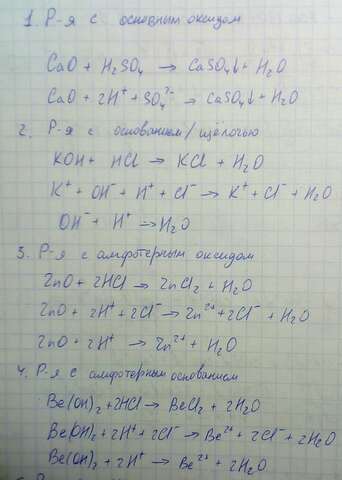 1. Р-я с основным оксидом
CaO + H₂SO₄ → CaSO₄↓ + H₂O
CaO + 2H⁺ + SO₄²⁻ → CaSO₄↓ + H₂O
2. Р-я с основанием/щёлочью
KOH + HCl → KCl + H₂O
K⁺ + OH⁻ + H⁺ + Cl⁻ → K⁺ + Cl⁻ + H₂O
OH⁻ + H⁺ → H₂O
3. Р-я с амфотерным оксидом
ZnO + 2HCl → ZnCl₂ + H₂O
ZnO + 2H⁺ + 2Cl⁻ → Zn²⁺ + 2Cl⁻ + H₂O
ZnO + 2H⁺ → Zn²⁺ + H₂O
4. Р-я с амфотерным основанием
Be(OH)₂ + 2HCl → BeCl₂ + 2H₂O
Be(OH)₂ + 2H⁺ + 2Cl⁻ → Be²⁺ + 2Cl⁻ + 2H₂O
Be(OH)₂ + 2H⁺ → Be²⁺ + 2H₂O